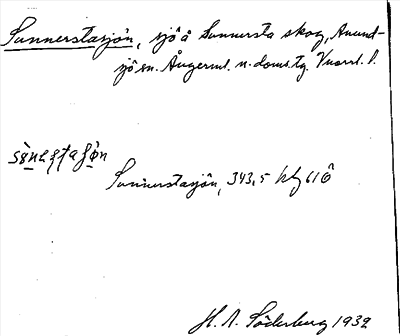 Sunnerstasjön, sjö å Sunnersta skog, Anund-
sjö sn. Ångerml. n. doms.tg. Vnorrl. l.
Sunnerstasjön, 343,5 hbl 61 Ö
H. A. Söderberg 1932